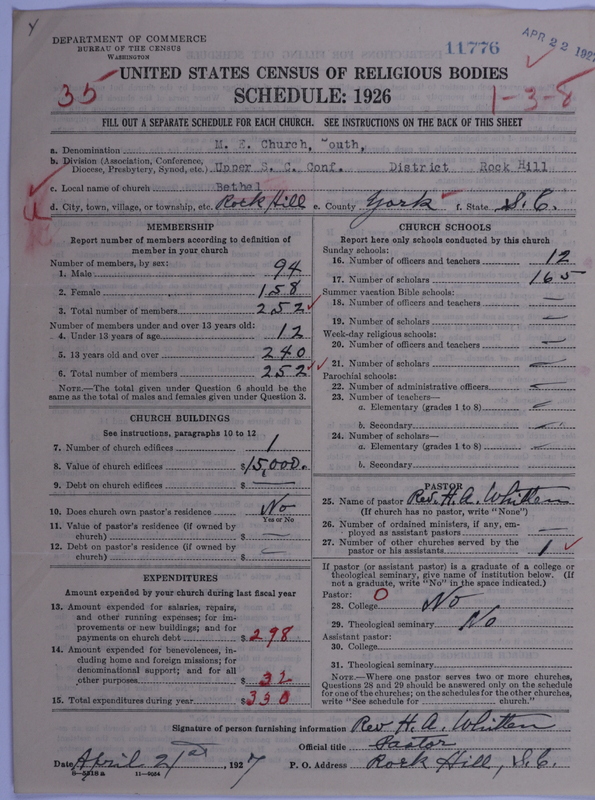 DEPARTMENT OF COMMERCE
BUREAU OF THE CENSUS
WASHINGTON
11776
APR 22 1927
UNITED STATES CENSUS OF RELIGIOUS BODIES
35
SCHEDULE: 1926
1-3-8
FILL OUT A SEPARATE SCHEDULE FOR EACH CHURCH. SEE INSTRUCTIONS ON THE BACK OF THIS SHEET
a. Denomination M. E. Church, South,
b. Division (Association, Conference, Diocese, Presbytery, Synod, etc.) Upper S. C. Conf. District Rock Hill
c. Local name of church Bethel
d. City, town, village, or township, etc. Rock Hill e. County York f. State S.C.
MEMBERSHIP
Report number of members according to definition of
member in your church
Number of members, by sex:
1. Male 94
2. Female 158
3. Total number of members 252
Number of members under and over 13 years old:
4. Under 13 years of age 12
5. 13 years old and over 240
6. Total number of members 252
NOTE.—The total given under Question 6 should be the
same as the total of males and females given under Question 3.
CHURCH BUILDINGS
See instructions, paragraphs 10 to 12
7. Number of church edifices 1
8. Value of church edifices $15,000.
9. Debt on church edifices $ —
10. Does church own pastor's residence No
Yes or No
11. Value of pastor's residence (if owned by
church) $ —
12. Debt on pastor's residence (if owned by
church) $ —
EXPENDITURES
Amount expended by your church during last fiscal year
13. Amount expended for salaries, repairs,
and other running expenses; for im-
provements or new buildings; and for
payments on church debt $ 298
14. Amount expended for benevolences, in-
cluding home and foreign missions; for
denominational support; and for all
other purposes $ 32
15. Total expenditures during year $ 330
CHURCH SCHOOLS
Report here only schools conducted by this church
Sunday schools:
16. Number of officers and teachers 12
17. Number of scholars 165
Summer vacation Bible schools:
18. Number of officers and teachers —
19. Number of scholars —
Week-day religious schools:
20. Number of officers and teachers —
21. Number of scholars —
Parochial schools:
22. Number of administrative officers —
23. Number of teachers—
a. Elementary (grades 1 to 8) —
b. Secondary —
24. Number of scholars—
a. Elementary (grades 1 to 8) —
b. Secondary —
PASTOR
25. Name of pastor Rev. H. A. Whitten
(If church has no pastor, write "None")
26. Number of ordained ministers, if any, em-
ployed as assistant pastors —
27. Number of other churches served by the
pastor or his assistants 1
If pastor (or assistant pastor) is a graduate of a college or
theological seminary, give name of institution below. (If
not a graduate, write "No" in the space indicated.)
Pastor: 0
28. College No
29. Theological seminary No
Assistant pastor:
30. College
31. Theological seminary
NOTE.—Where one pastor serves two or more churches,
Questions 28 and 29 should be answered only on the schedule
for one of the churches; on the schedules for the other churches,
write "See schedule for church."
Signature of person furnishing information Rev H. A. Whitten
Official title Pastor
Date April 21st, 1927 P. O. Address Rock Hill, S.C.
8—5818 a 11—9054